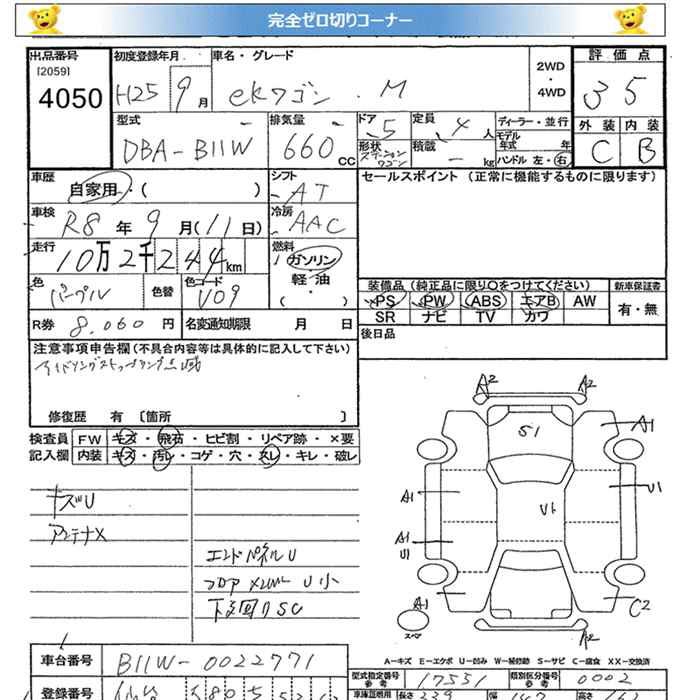 完全ゼロ切りコーナー
出品番号 初度登録年月 車名・グレード 2WD・4WD 評価点
[2059]
4050 H25 9月 ekワゴン・M 35
外装 内装
C B
型式 排気量 ドア 定員 ディーラー・並行
DBA-B11W 660cc 5 4人 モデル年式 年
形状 ステーションワゴン 積載 - kg ハンドル 左・右
車歴 自家用・( ) シフト AT セールスポイント (正常に機能するものに限ります)
車検 R8年9月(11日) 冷房 AAC
走行 10万2千244km 燃料 ガソリン・軽油・( )
色 パープル 色替 色コード V09
装備品 (純正品に限り○をつけてください) 新車保証書
PS PW ABS エアB AW 有・無
SR ナビ TV カワ
R券 8.060円 名変通知期限 月 日 後日品
注意事項申告欄 (不具合内容等は具体的に記入して下さい)
アイドリングストップランプ点滅
修復歴 有 〔箇所 〕
検査員 FW キズ・飛石・ヒビ割・リペア跡・×要
記入欄 内装 キズ・汚レ・コゲ・穴・スレ・キレ・破レ
キズU
アンテナX
エンドパネルU
フロア メンバー U小
下廻りSC
A2 A2
S1 A1
A1 U1 U1
A1
U1
A1 C2
スペア A2
A-キズ E-エクボ U-凹み W-補修跡 S-サビ C-腐食 XX-交換済
車台番号 B11W-0022771 型式指定番号 参考 17551 類別区分番号 参考 0002
登録番号 仙台 580 車庫証明用 長さ 339